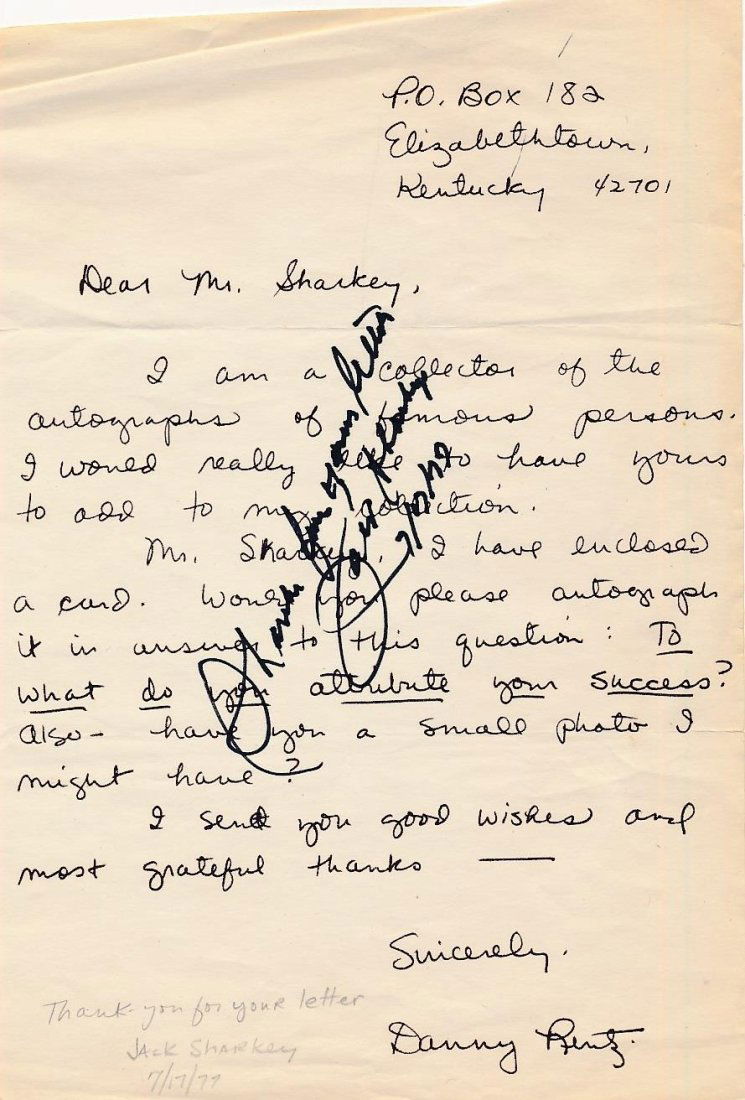 P.O. Box 182
Elizabethtown,
Kentucky 42701
Dear Mr. Sharkey,
I am a collector of the
autographs of famous persons.
I would really like to have yours
to add to my collection.
Mr. Sharkey, I have enclosed
a card. Would you please autograph
it in answer to this question: To
what do you attribute your success?
Also - have you a small photo I
might have?
I send you good wishes and
most grateful thanks —
Sincerely,
Danny
Thank for your letter
Jack Sharkey
Thank-you for your letter
JACK SHARKEY
7/17/77